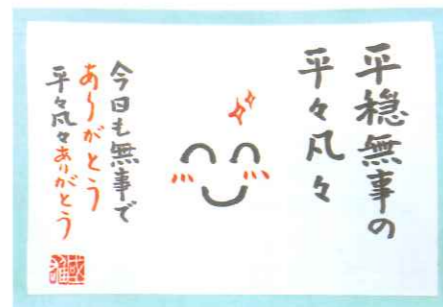 平穏無事の
平々凡々
今日も無事で
ありがとう
平々凡々ありがとう